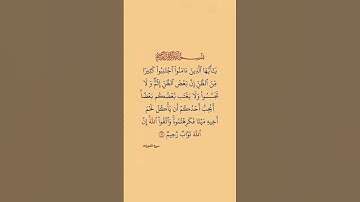 بِسْمِ ٱللَّهِ ٱلرَّحْمَـٰنِ ٱلرَّحِيمِ
يَـٰٓأَيُّهَا ٱلَّذِينَ ءَامَنُوا۟ ٱجْتَنِبُوا۟ كَثِيرًا
مِّنَ ٱلظَّنِّ إِنَّ بَعْضَ ٱلظَّنِّ إِثْمٌ وَ لَا
تَجَسَّسُوا۟ وَلَا يَغْتَب بَّعْضُكُم بَعْضًا
أَيُحِبُّ أَحَدُكُمْ أَن يَأْكُلَ لَحْمَ
أَخِيهِ مَيْتًا فَكَرِهْتُمُوهُ وَٱتَّقُوا۟ ٱللَّهَ إِنَّ
ٱللَّهَ تَوَّابٌ رَّحِيمٌ ١٢
سورة الحجرات